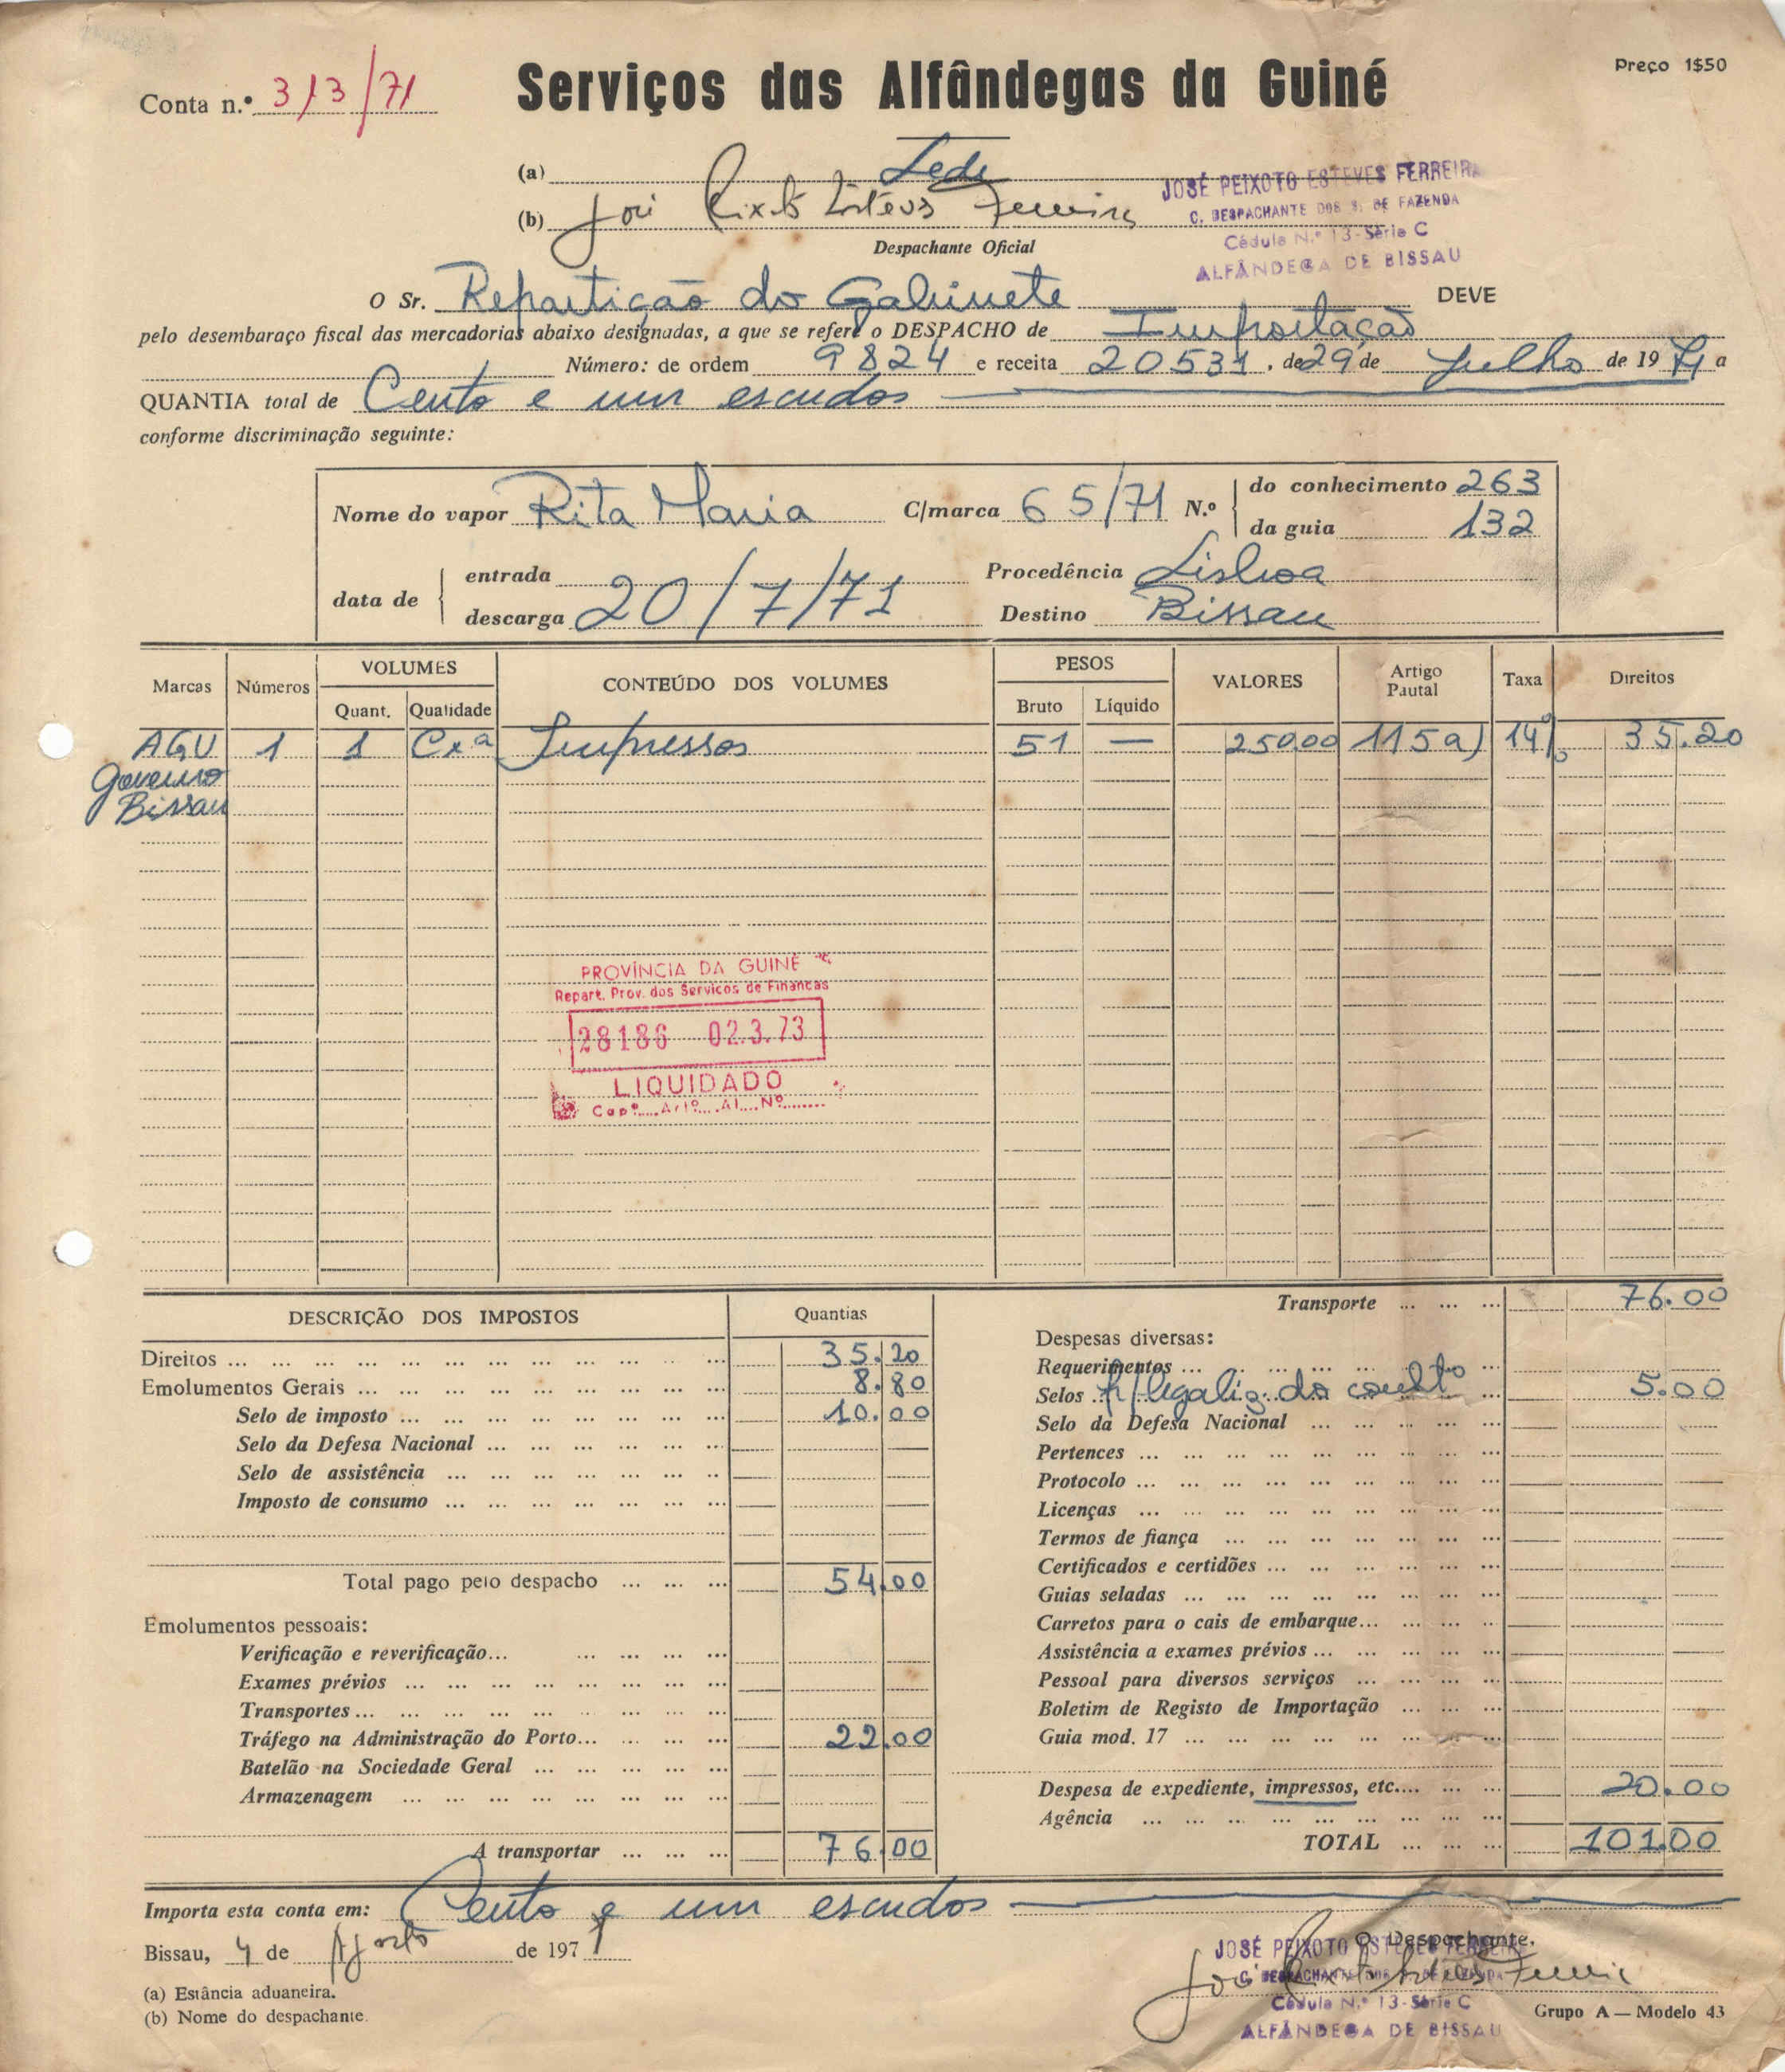 Conta n.º 313/71
Serviços das Alfândegas da Guiné
Preço 1$50
(a) Sede
(b) José Peixoto Esteves Ferreira
Despachante Oficial
JOSÉ PEIXOTO ESTEVES FERREIRA
C. DESPACHANTE DOS S. DE FAZENDA
Cédula N.º 13-Série C
ALFÂNDEGA DE BISSAU
O Sr. Repartição do Gabinete DEVE
pelo desembaraço fiscal das mercadorias abaixo designadas, a que se refere o DESPACHO de Importação
Número: de ordem 9824 e receita 20531, de 29 de Julho de 1971 a
QUANTIA total de Cento e um escudos
conforme discriminação seguinte:
Nome do vapor Rita Maria C/marca 65/71 N.º do conhecimento 263
da guia 132
data de entrada Procedência Lisboa
descarga 20/7/71 Destino Bissau
Marcas Números VOLUMES CONTEÚDO DOS VOLUMES PESOS VALORES Artigo Pautal Taxa Direitos
Quant. Qualidade Bruto Líquido
AGU 1 1 Cxª Impressos 51 — 250.00 115a) 14% 35.20
Governo
Bissau
PROVÍNCIA DA GUINÉ
Repart. Prov. dos Servicos de Financas
28186 02.3.73
LIQUIDADO
Capº.... Artº.... Al.... Nº........
DESCRIÇÃO DOS IMPOSTOS Quantias
Direitos ... 35.20
Emolumentos Gerais ... 8.80
Selo de imposto ... 10.00
Selo da Defesa Nacional ...
Selo de assistência ...
Imposto de consumo ...
Total pago pelo despacho ... 54.00
Emolumentos pessoais:
Verificação e reverificação...
Exames prévios ...
Transportes ...
Tráfego na Administração do Porto... 22.00
Batelão na Sociedade Geral ...
Armazenagem ...
A transportar ... 76.00
Transporte ... 76.00
Despesas diversas:
Requerimentos ...
Selos p/ legaliz. do conhto 5.00
Selo da Defesa Nacional ...
Pertences ...
Protocolo ...
Licenças ...
Termos de fiança ...
Certificados e certidões ...
Guias seladas ...
Carretos para o cais de embarque...
Assistência a exames prévios ...
Pessoal para diversos serviços ...
Boletim de Registo de Importação ...
Guia mod. 17 ...
Despesa de expediente, impressos, etc.... 20.00
Agência ...
TOTAL ... 101.00
Importa esta conta em: Cento e um escudos
Bissau, 4 de Agosto de 1971
O Despachante,
José Peixoto Esteves Ferreira
JOSÉ PEIXOTO ESTEVES FERREIRA
C. DESPACHANTE DOS S. DE FAZENDA
Cédula N.º 13-Série C
ALFÂNDEGA DE BISSAU
(a) Estância aduaneira.
(b) Nome do despachante.
Grupo A — Modelo 43